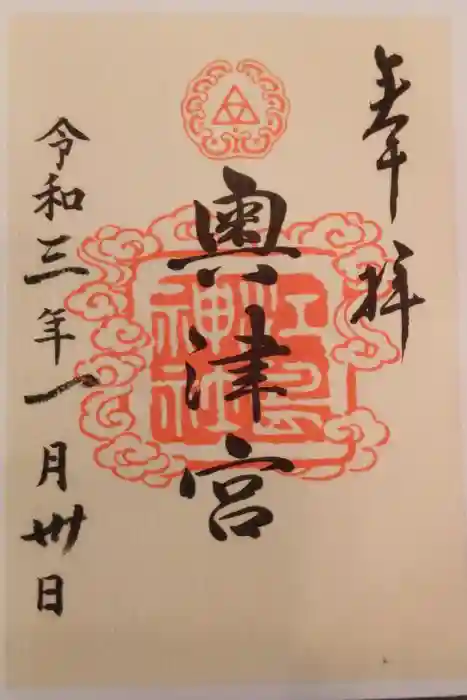 奉拝
奥津宮
江島
神社
令和三年一月卅日